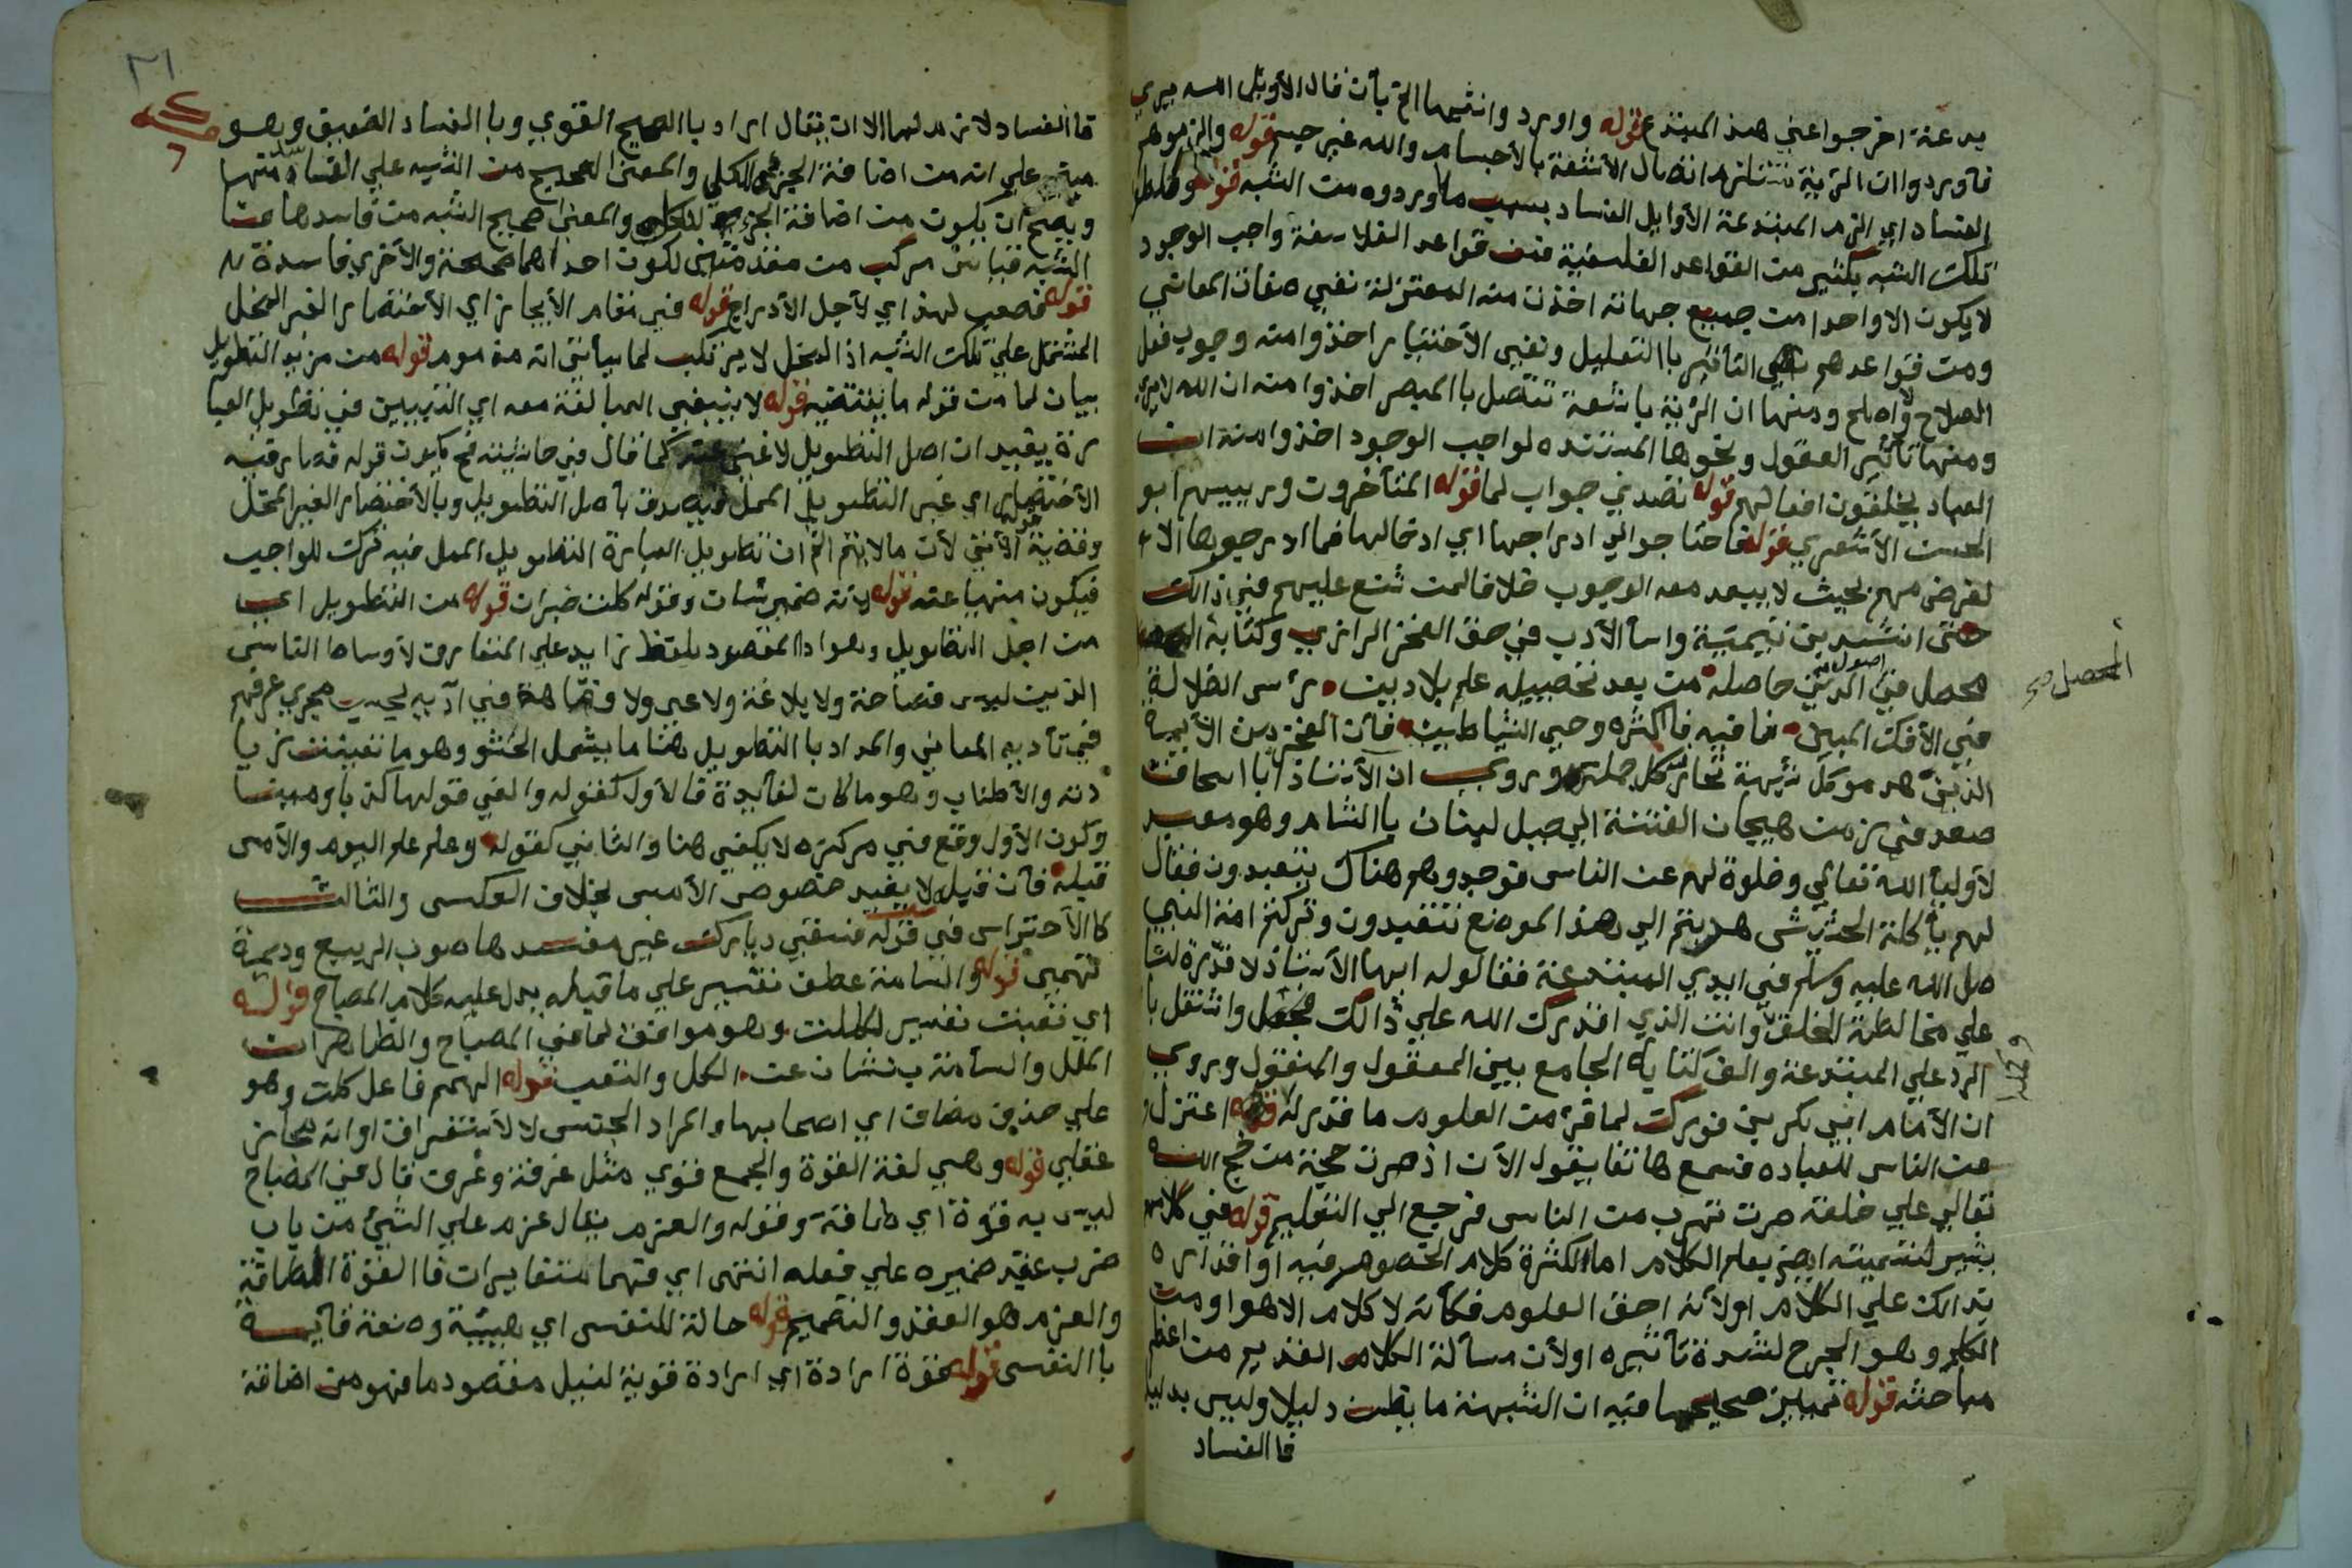 بدعنة اخرجوا عني هذ المبتدع قوله واورد وا نشيها الخ بأن قال الأويل الله يري
فأوردوا ان الرؤية تستلزم اتصال الأشعة بالأجسام والله غير جسم قوله والزموهم
الفساد اي الزم المبتدعة الأوايل الفساد بسبب ما أوردوه من الشبه قوله وخلط
تلك الشبه بكثير من القواعد الفلسفية فمن قواعد الفلاسفة واجب الوجود
لا يكون الا واحدا من جميع جهاته اخذت منه المعتزلة نفي صفات المعاني
ومن قواعدهم نفي التأثير باالتعليل ونفي الأختيار اخذوا منه وجوب فعل
الصلاح والاصلح ومنها ان الرؤية باشعة تتصل باالمبصر اخذوا منه ان الله لا يرى
ومنها تأثير العقول ونحوها المستنده لواجب الوجود اخذوا منه ان
العباد يخلقون افعالهم قوله تصدي جواب لما قوله المتأخرون ورييسهم ابو
الحسن الأشعري قوله فاحتاجوا الي ادراجها اي ادخالها فما ادرجوها الا
لغرض مهم بحيث لا يبعد معه الوجوب خلافا لمن شنع عليهم في ذالك
حتى انشد بن تيمية واسأ الأدب في حق الفخر الرازي وكتابه
محصل في اصول الدين حاصله من بعد تحصيله علم بلا دين رأس الضلالة
في الأفك المبين فما فيه فأكثره وحي الشياطين فان الفخر من الأيمة
الذين هدموا كل شبهة تحاربه كل ملة وروي ان الأستاذ ابا اسحاق
صعد في زمن هيجان الفتنة الي جبل لبنان باالشام وهو معبد
لأوليأ الله تعالي وخلوة لهم عن الناس فوجدوهم هناك يتعبدون فقال
لهم يأكلة الحشيش هربتم الي هذ الموضع تتعبدون وتركتم امة النبي
صلى الله عليه وسلم في ايدي المبتدعة فقالوله ايها الأستاذ لا قدرة لنا
علي مخالطة الخلق وانت الذي اقدرك الله علي ذالك فجعل واشتغل با
الرد علي المبتدعة والف كتابه الجامع بين المعقول والمنقول وروي
ان الأمام ابي بكر بن فورك لما قرء من العلوم ما قدر له قوله اعتزل
عن الناس للعباده فسمع هاتفا يقول الآن اذ صرت حجة من حجج الله
تعالي علي خلقه صرت تهرب من الناس فرجع الي التعليم قوله في كلامهم
يشير لتسميته ايضا بعلم الكلام اما لكثرة كلام الخصوم فيه أو اقداره
بذالك علي الكلام اولأنه احق العلوم فكأنه لا كلام الا هو او من
الكلم وهو الجرح لشدة تأثيره اولأن مسألة الكلام القديم من اعظم
مباحثه قوله تمييز صحيحها فيه ان الشبهة ما يظن دليلا وليس بدليل
فا الفساد
المحصل صح
٢١
فا الفساد لازم لها الا ان يقال اراد باالصحيح القوي وبا الفساد الضعيف وهو
مبني علي انه من اضافة الجزئي للكلي والمعنى الصحيح من الشبه علي الفساد منها
ويصح ان يكون من اضافة الجزء للكل والمعنى صحيح الشبه من فاسدها
الشبه قياس مركب من مقدمتين لكون احداهما صحيحة والأخري فاسدة
قوله فصعب لهذ اي لأجل الأدراج قوله في مقام الأيجاز اي الأختصار الغير المخل
المشتمل علي تلك الشبه اذ المخل لا يرتكب لما سيأتي انه مذموم قوله من مزيد التطويل
بيان لما من قوله ما يقتضيه قوله لا ينبغي المبالغة معه اي التبيين في تطويل العبا
رة يفيد ان اصل التطويل لا غني عنه كما قال في حاشيته فح يكون قوله قصار فيه
الأختصار اي غير التطويل الممل فيصدق بأصل التطويل وبالأختصار الغير المخل
وقضية الأتي لأن ما لا يتم الخ ان تطويل العبارة التطويل الممل فيه ترك للواجب
فيكون منهيا عنه قوله لأنه ضمير شان وقوله كلت خبران قوله من التطويل اي
من اجل التطويل وهو اداالمقصود بلفظ زايد علي المتعارف لأوساط الناس
الذين ليس فصاحة ولا بلاغة ولا عي ولا فهاهة في ادآيه لحديث مجري عرفهم
في تأديه المعاني والمراد باالتطويل هنا ما يشمل الحشو وهو ما تعينت زيا
دته والأطناب وهو ما كان لفأيدة فالأول كقوله والفي قولها كذبا ومينا
وكون الأول وقع في مركزه لا يكفي هنا والثاني كقوله وعلم علم اليوم والأمس
قبله فان قبله لا يفيد خصوص الأمس بخلاف العكس والثالث
كاالأحتراس في قوله فسقي ديارك غير مفسدها صوب الربيع وديمة
تهمي قوله والسامة عطف تفسير علي ما قبله يدل عليه كلام المصباح قوله
اي تعبت تفسير لكلت وهو موافق لما في المصباح والظاهر ان
الملل والسأمة ينشان عن الكل والتعب قوله الهمم فاعل كلت وهو
علي حذف مضاف اي اصحابها والمراد الجنس لا لأستغراق اوانه مجاز
عقلي قوله وهي لغة القوة والجمع قوي مثل غرفة وغرف قال في المصباح
ليس به قوة اي طاقة وقوله والعزم يقال عزم علي الشيئ من باب
ضرب عقد ضميره علي فعله انتهى اي فهما متغايران فاالقوة الطاقة
والعزم هو العقد والتصميم قوله حالة للنفس اي هيئة وصفة قأيمة
باالنفس قوله بقوة ارادة اي ارادة قوية لنيل مقصود ما فهو من اضافة